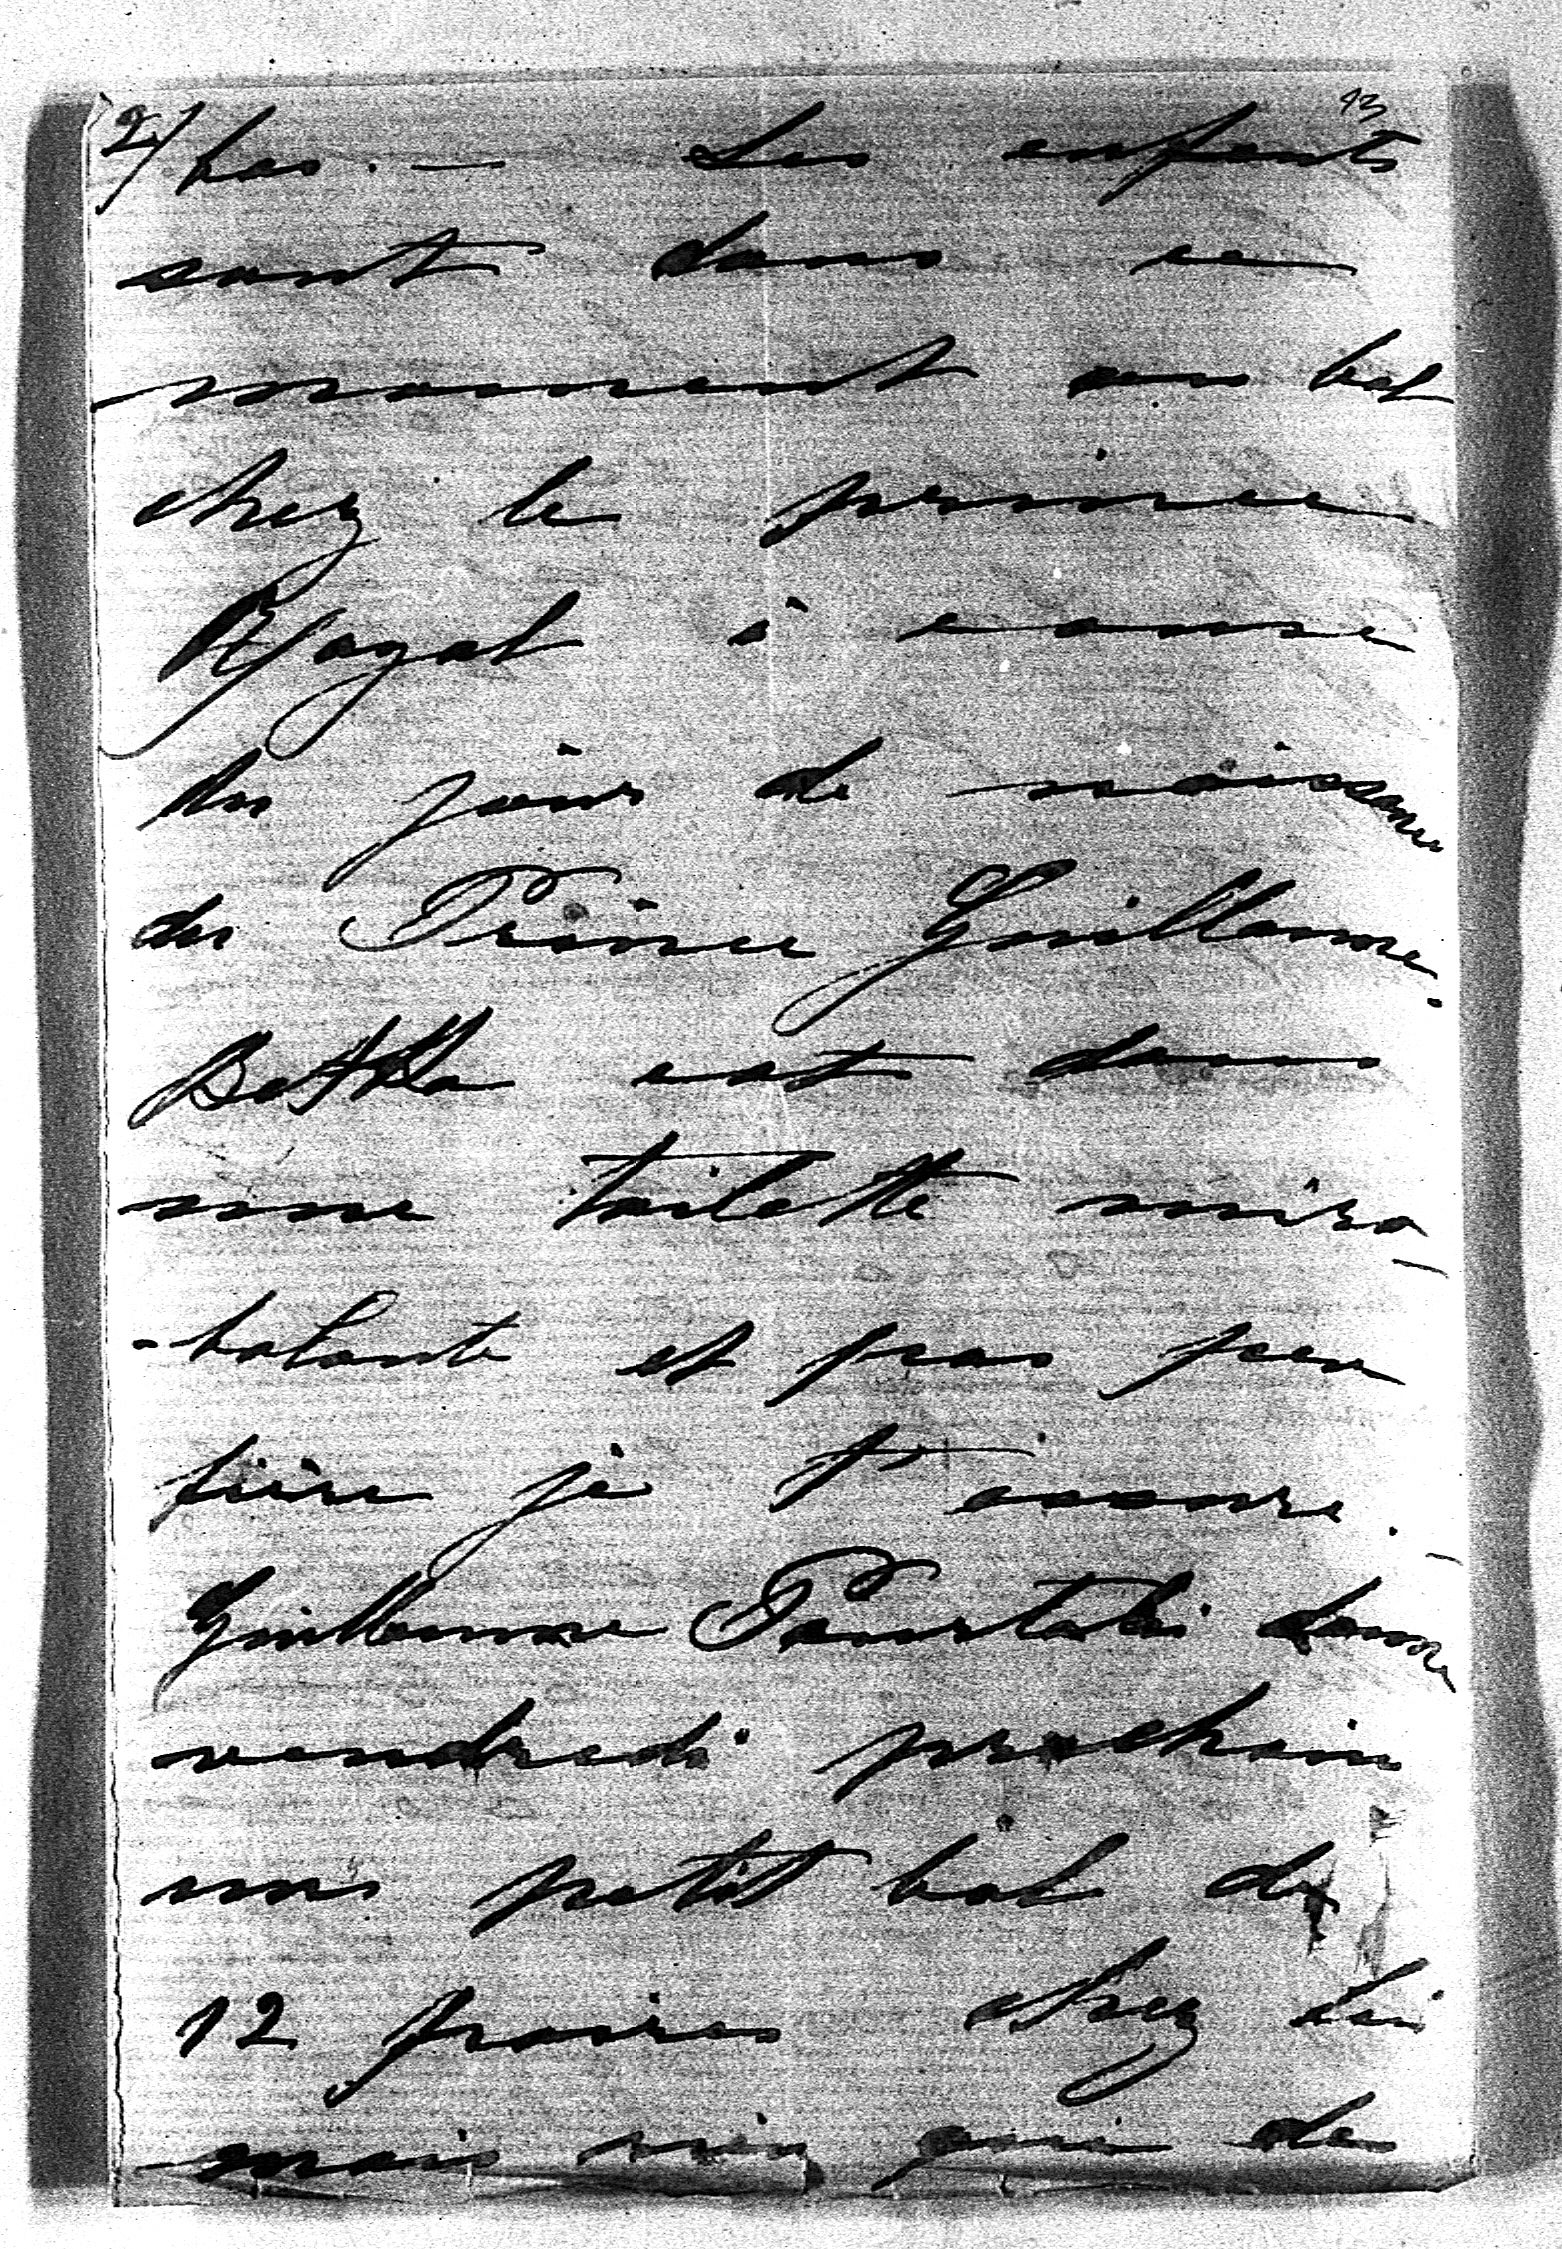 2/ bas. — Les enfants
13
sont dans ce
moment au bal
chez le prince
Royal à cause
du jour de naissance
du Prince Guillaume.
Betka est dans
une toilette miro-
-bolante et pas peu
fière je t'assure. —
Guillaume Pourtalès donne
vendredi prochain
un petit bal de
12 paires chez lui
mais rien que des